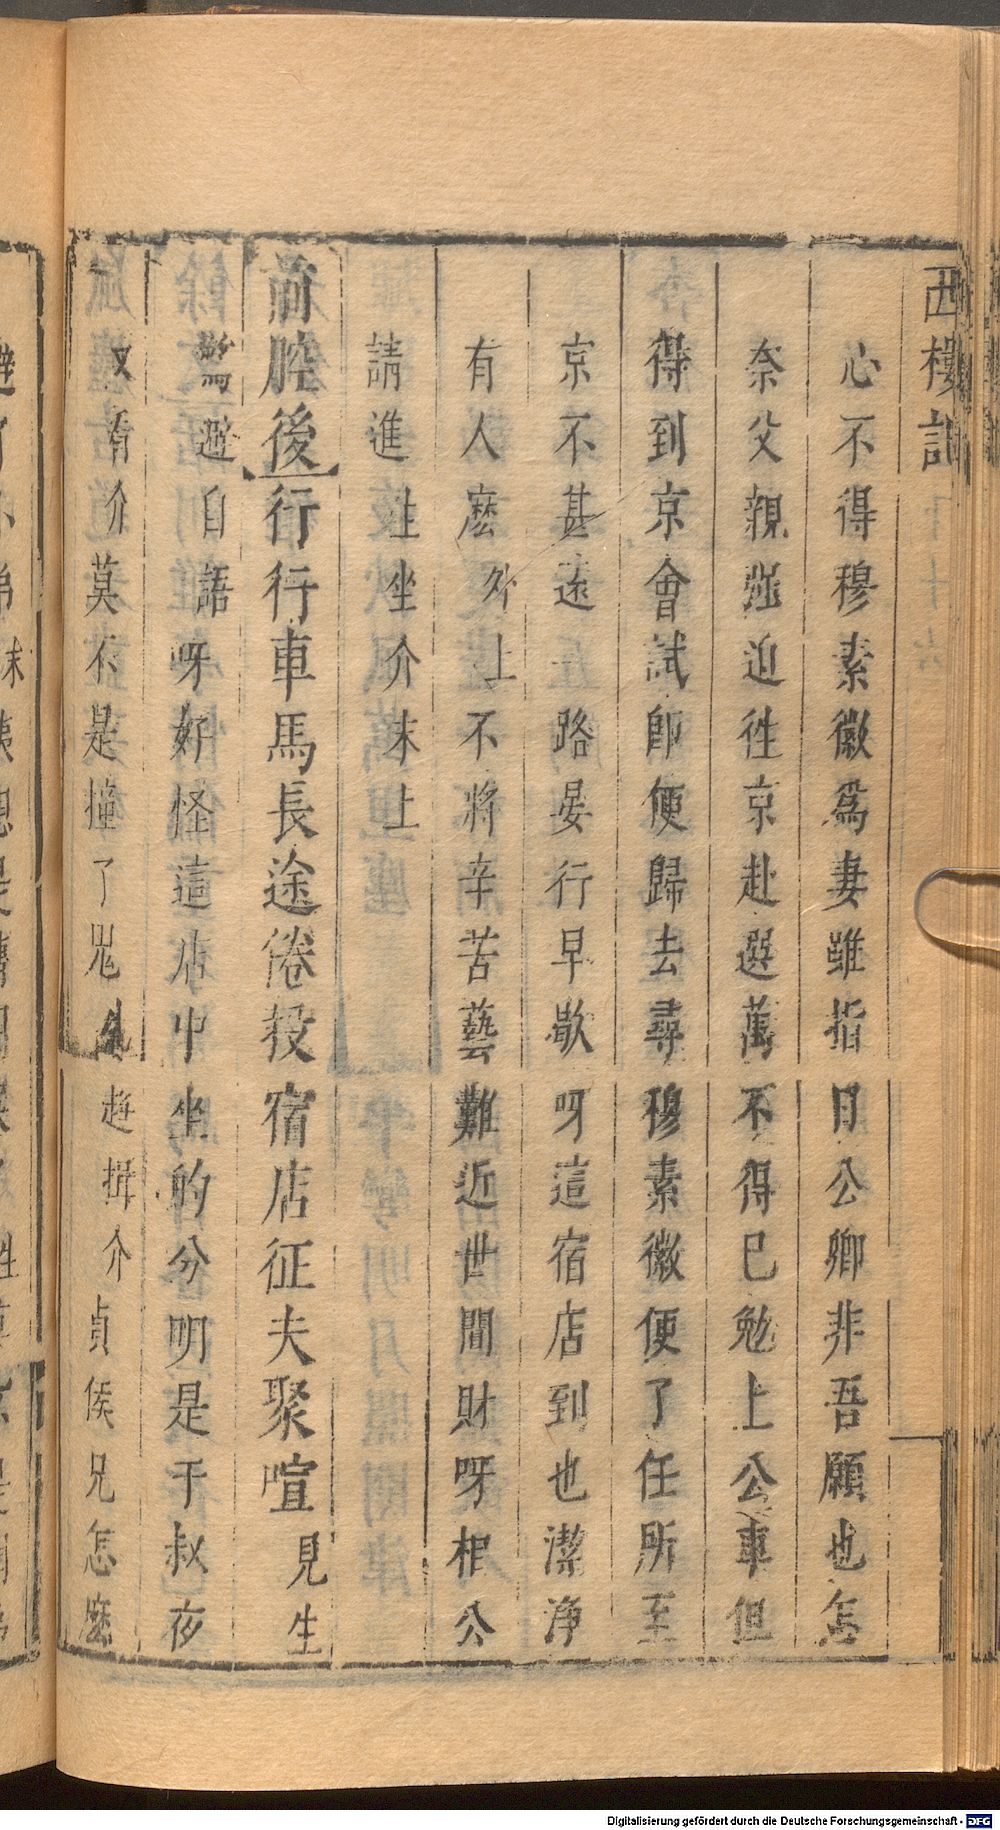 西樓記
心不得穆素徽爲妻雖指日公卿非吾願也怎
奈父親强迫徃京赴選萬不得已勉上公車但
得到京會試卽便歸去尋穆素徽便了任所至
京不甚遠路晏行早歇呀這宿店到也潔淨
有人麽外上不將辛苦藝難近世間財呀相公
請進生坐介末上
前腔後行行車馬長途倦投宿店征夫聚喧見生
驚避自語呀好怪這店中坐的分明是于叔夜
又看介莫不是撞了鬼生趨揖介貞侯兄怎麽
Digitalisierung gefördert durch die Deutsche Forschungsgemeinschaft - DFG